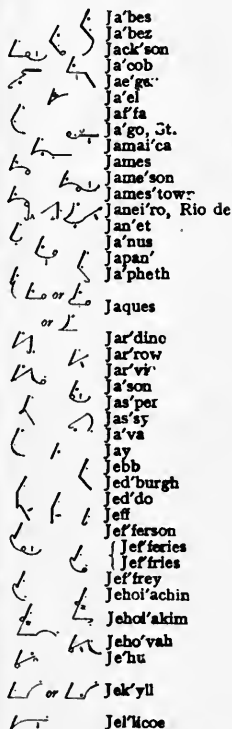 Ja'bes
Ja'bez
Jack'son
Ja'cob
Jae'ger
Ja'el
Jaf'fa
Ja'go, St.
Jamai'ca
James
Jame'son
James'town
Janei'ro, Rio de
Jan'et
Ja'nus
Japan'
Ja'pheth
or
Jaques
or
Jar'dine
Jar'row
Jar'vis
Ja'son
Jas'per
Jas'sy
Ja'va
Jay
Jebb
Jed'burgh
Jed'do
Jeff
Jef'ferson
{ Jef'feries
Jef'fries
Jef'frey
Jehoi'achin
Jehoi'akim
Jeho'vah
Je'hu
or Jek'yll
Jel'licoe